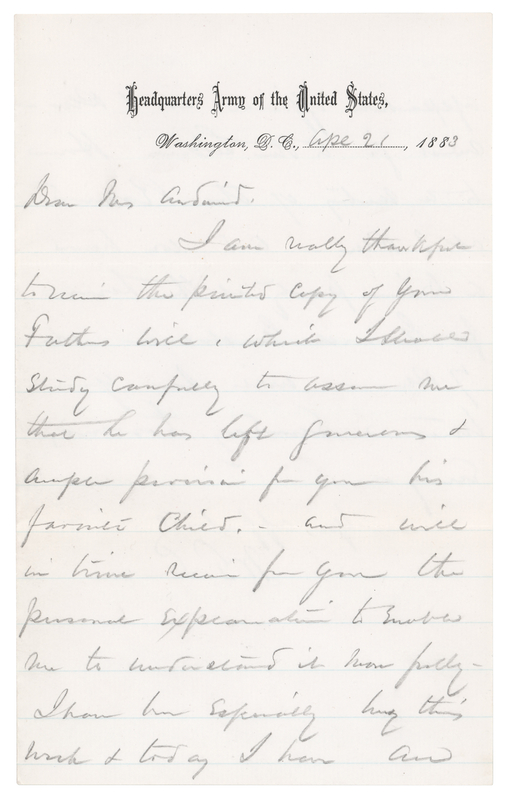 Headquarters Army of the United States,
Washington, D. C., Apl 21, 1883
Dear Mrs Audenried.
I am really thankful
to receive the printed copy of your
Fathers Will, which I should
study carefully to assure me
that he has left generous &
ample provision for you his
favorite Child. - and will
in time receive from you the
personal explanation to enable
me to understand it more fully -
I have been Especially busy this
week & today I have and